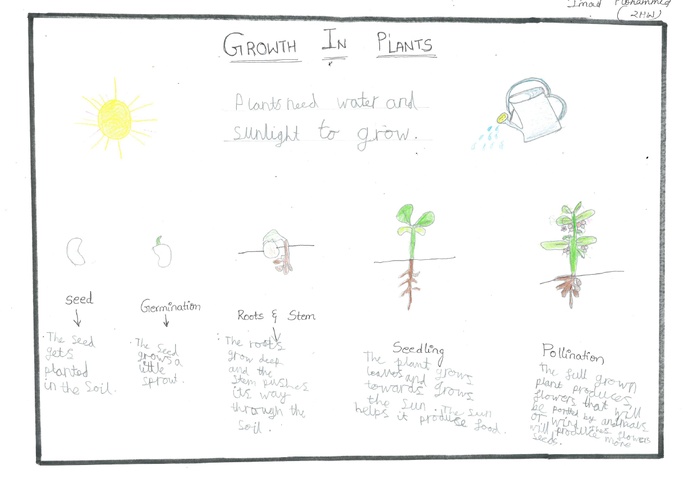 Imad Mohammed
(2MW)
GROWTH IN PLANTS
Plants need water and
sunlight to grow.
seed
· The seed
gets
planted
in the soil.
Germination
· The seed
grows a
little
sprout.
Roots & Stem
· The roots
grow deep
and the
stem pushes
its way
through the
soil.
Seedling
The plant grows
leaves and grows
towards
the sun. The sun
helps it produce food.
Pollination
The full grown
plant produces
flowers that will
be by animals
or wind. flowers
will produce more
seeds.